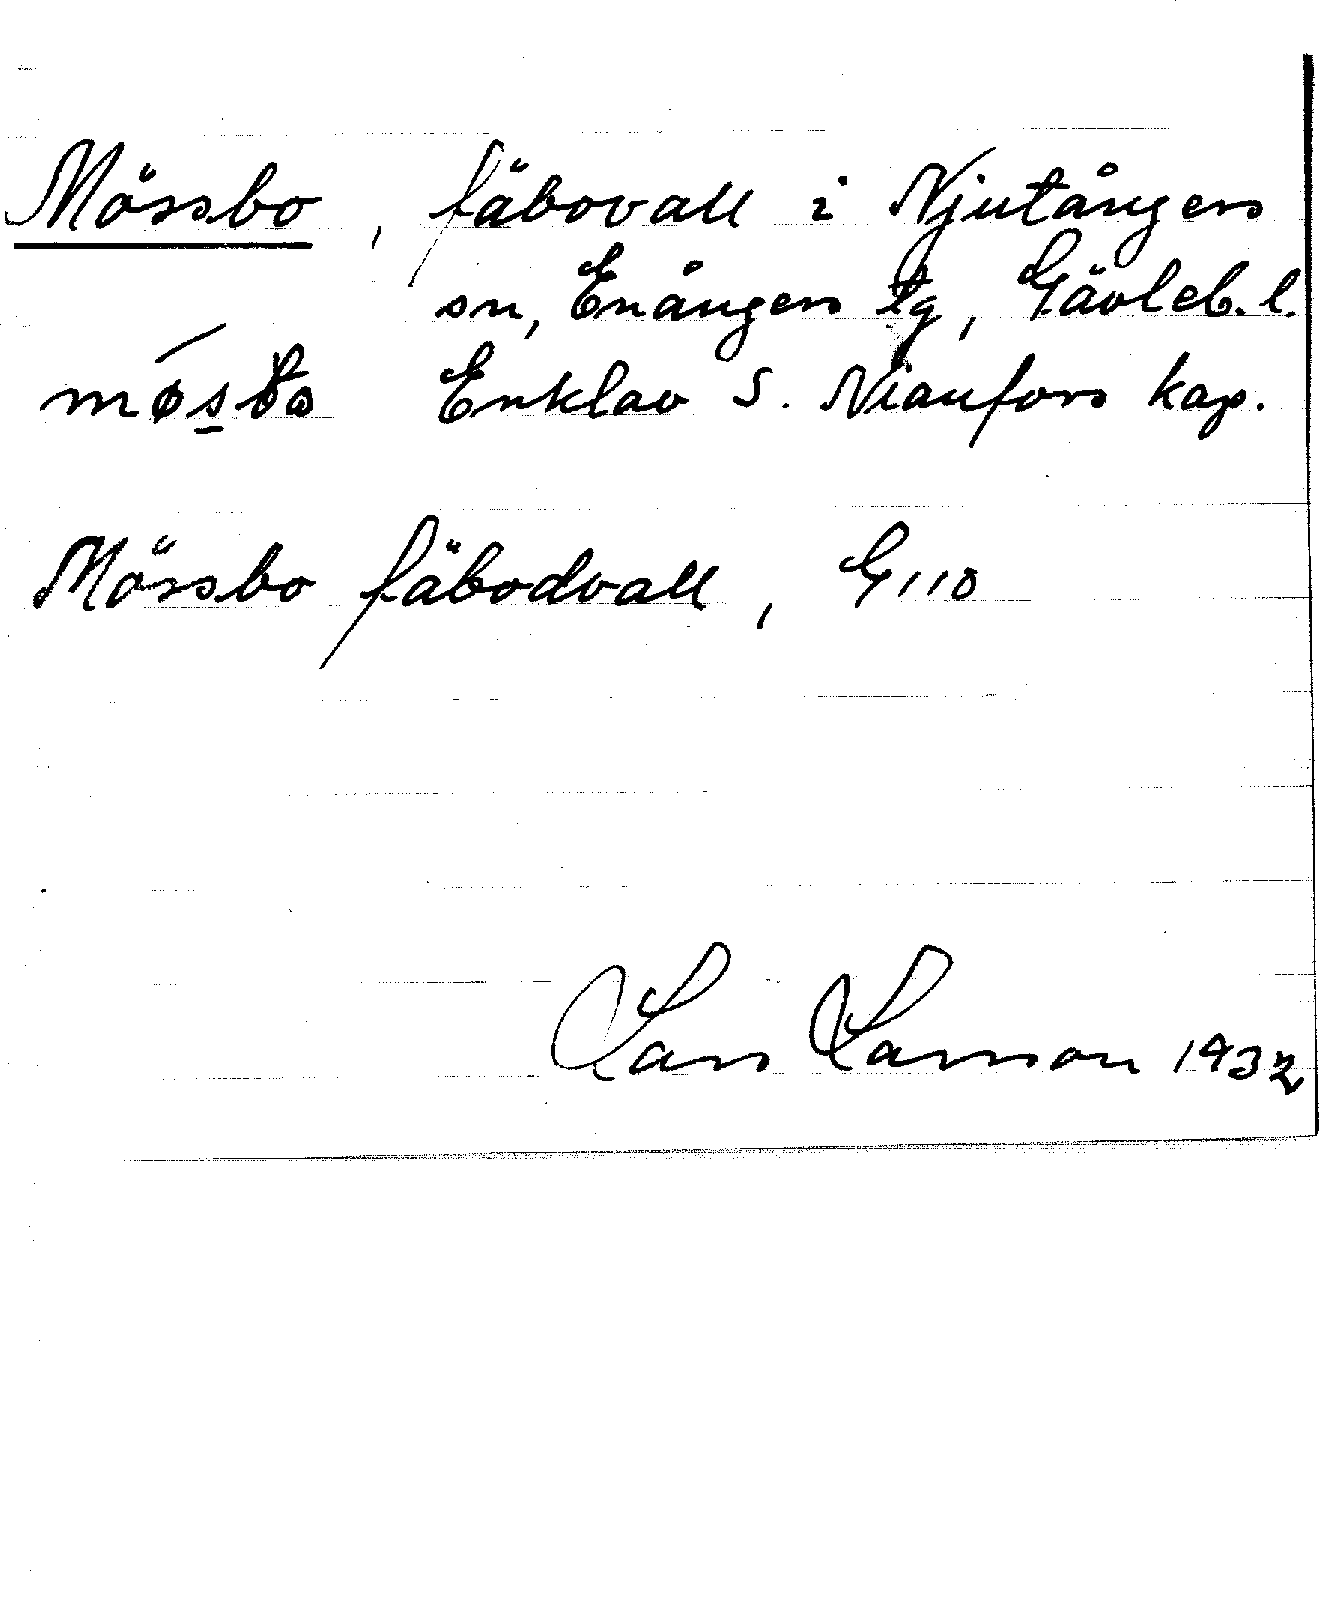 Mössbo, fäbovall i Njutångers
sn, Enångers tg, Gävleb. l.
Enklav S. Nianfors kap.
Mössbo fäbodvall, G110
Lars Larsson 1932